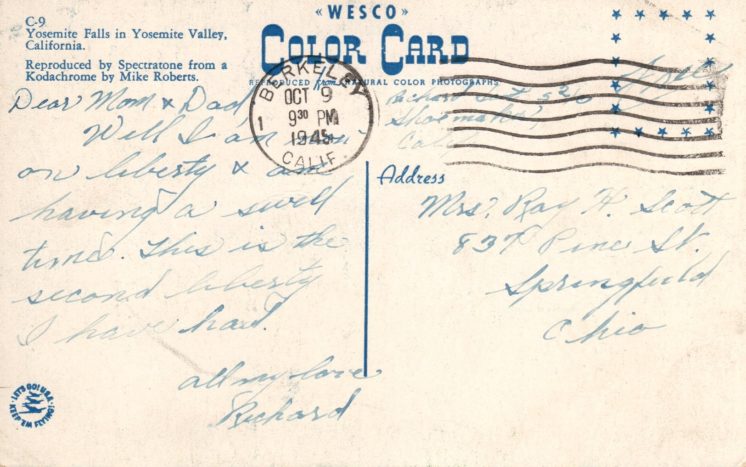 C-9
Yosemite Falls in Yosemite Valley,
California.
Reproduced by Spectratone from a
Kodachrome by Mike Roberts.
«WESCO»
COLOR CARD
REPRODUCED FROM NATURAL COLOR PHOTOGRAPHS
BERKELEY
OCT 9
9 30 PM
1945
CALIF.
1
Dear Mom & Dad
Well I am now
on liberty & am
having a swell
time. This is the
second liberty
I have had.
all my love
Richard
Richard
Shoemaker,
Calif
Address
Mrs. Ray H. Scott
837 Pine St.
Springfield
Ohio
LET'S GO! U.S.A.
KEEP 'EM FLYING!